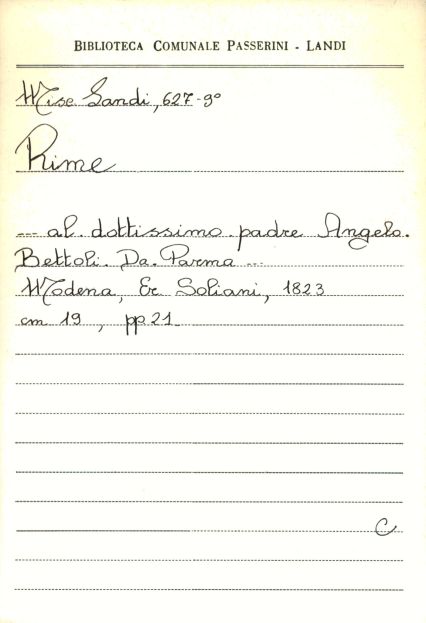 BIBLIOTECA COMUNALE PASSERINI - LANDI
Misc Landi, 627-9°
Rime
--- al dottissimo padre Angelo
Bettoli Da Parma ---
Modena, Er Soliani, 1823
cm 19, pp 21
C